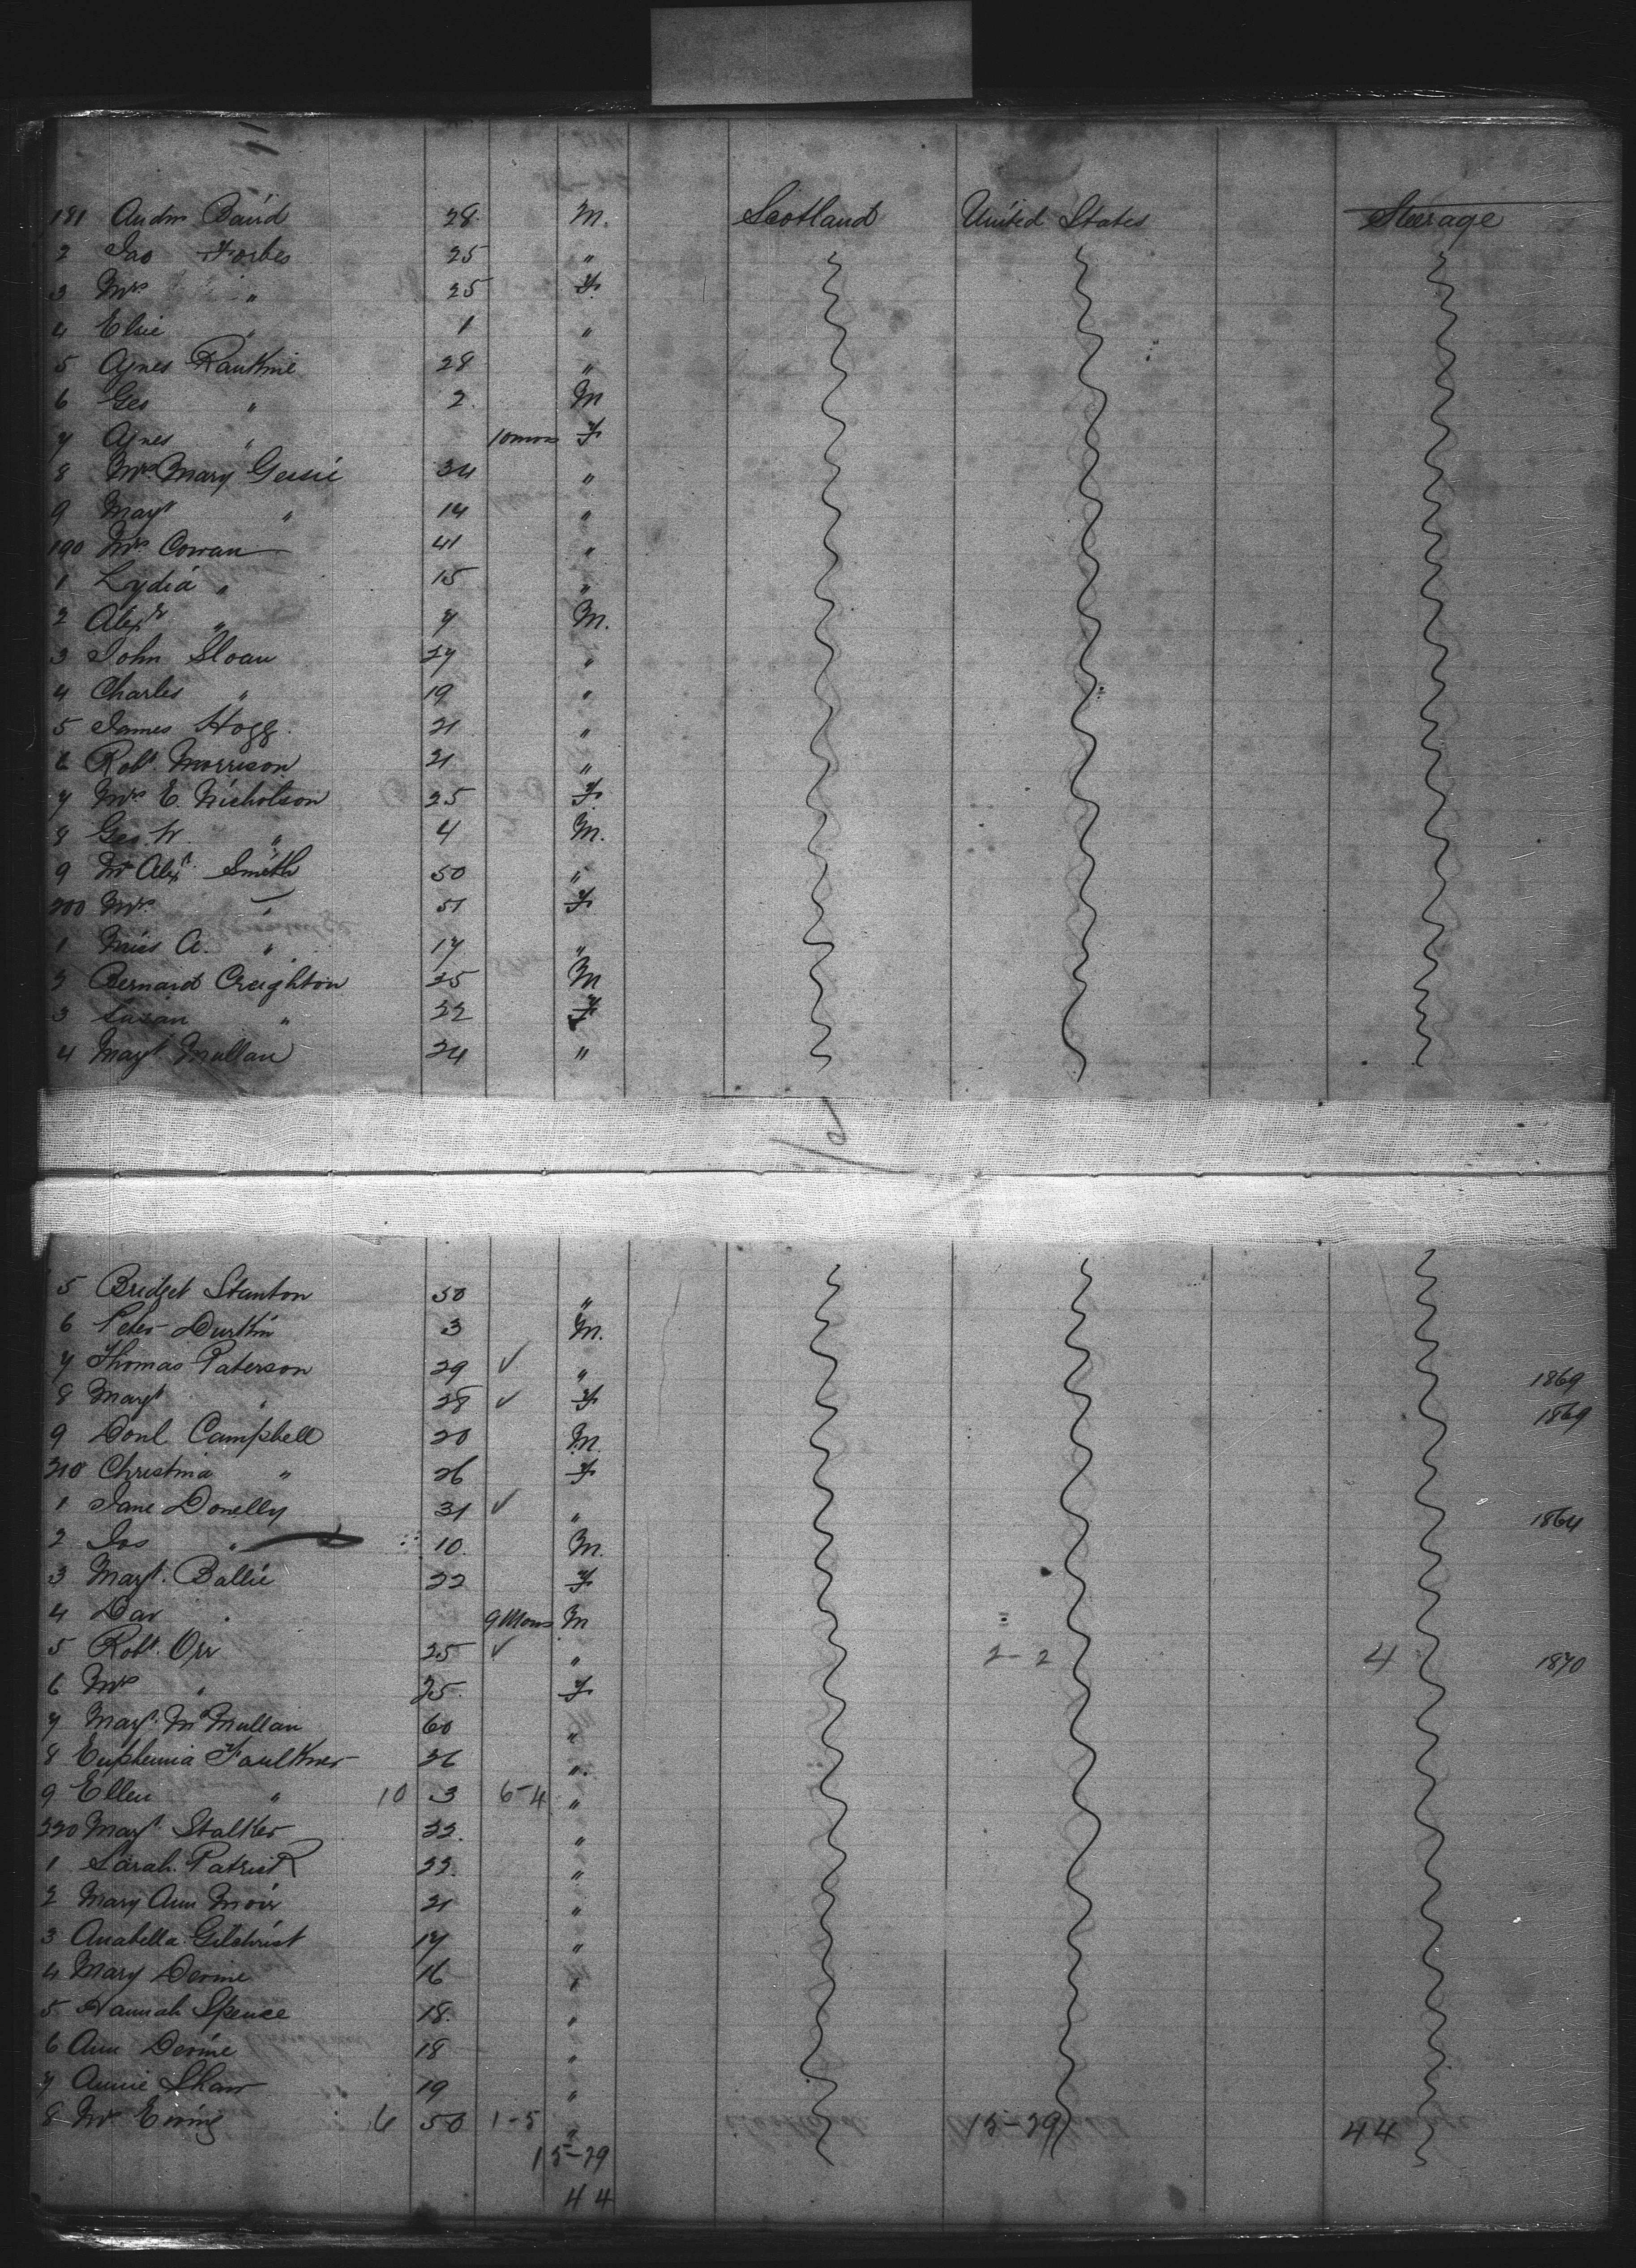 181 Andw Baird 28 M. Scotland United States Steerage
2 Jao Forbes 25 "
3 Mrs " 25 F.
4 Elsie " 1 "
5 Agnes Rankine 28 "
6 Geo " 2 M
7 Agnes " 10 mos F
8 Mrs Mary Gessie 34 "
9 Magt " 14 "
190 Mrs Cowan 41 "
1 Lydia " 15 "
2 Alexr " 7 M.
3 John Sloan 27 "
4 Charles " 19 "
5 James Hogg 21 "
6 Robt. Morrison 21 "
7 Mrs E. Nicholson 25 F.
8 Geo. W. " 4 M.
9 Mr Alexr Smith 50 "
200 Mrs. " 51 F.
1 Miss A. " 17 "
2 Bernard Creighton 25 M
3 Susan " 22 F
4 Magt Mullan 24 "
5 Bridget Stanton 50 "
6 Peter Durkin 3 M.
7 Thomas Paterson 29 ✓ " 1869
8 Magt " 28 ✓ F 1869
9 Donl Campbell 20 M.
210 Christina " 26 F
1 Jane Donelly 31 ✓ " 1864
2 Jas " 10 M.
3 Magt. Ballie 22 F
4 Dav " 9 Mons M
5 Robt. Orr 25 ✓ " 2-2 4 1870
6 Mrs " 25 F
7 Magt. McMullan 60 "
8 Euphemia Faulkner 26 "
9 Ellen " 10 3 6-4 "
220 Magt Stalker 22 "
1 Sarah Patrick 22 "
2 Mary Ann Moir 21 "
3 Anabella Gilchrist 17 "
4 Mary Devine 16 "
5 Hannah Spence 18 "
6 Ann Devine 18 "
7 Annie Shaw 19 "
8 Mr Ewing 6 50 1-5 " 15-29 44
15-29
44